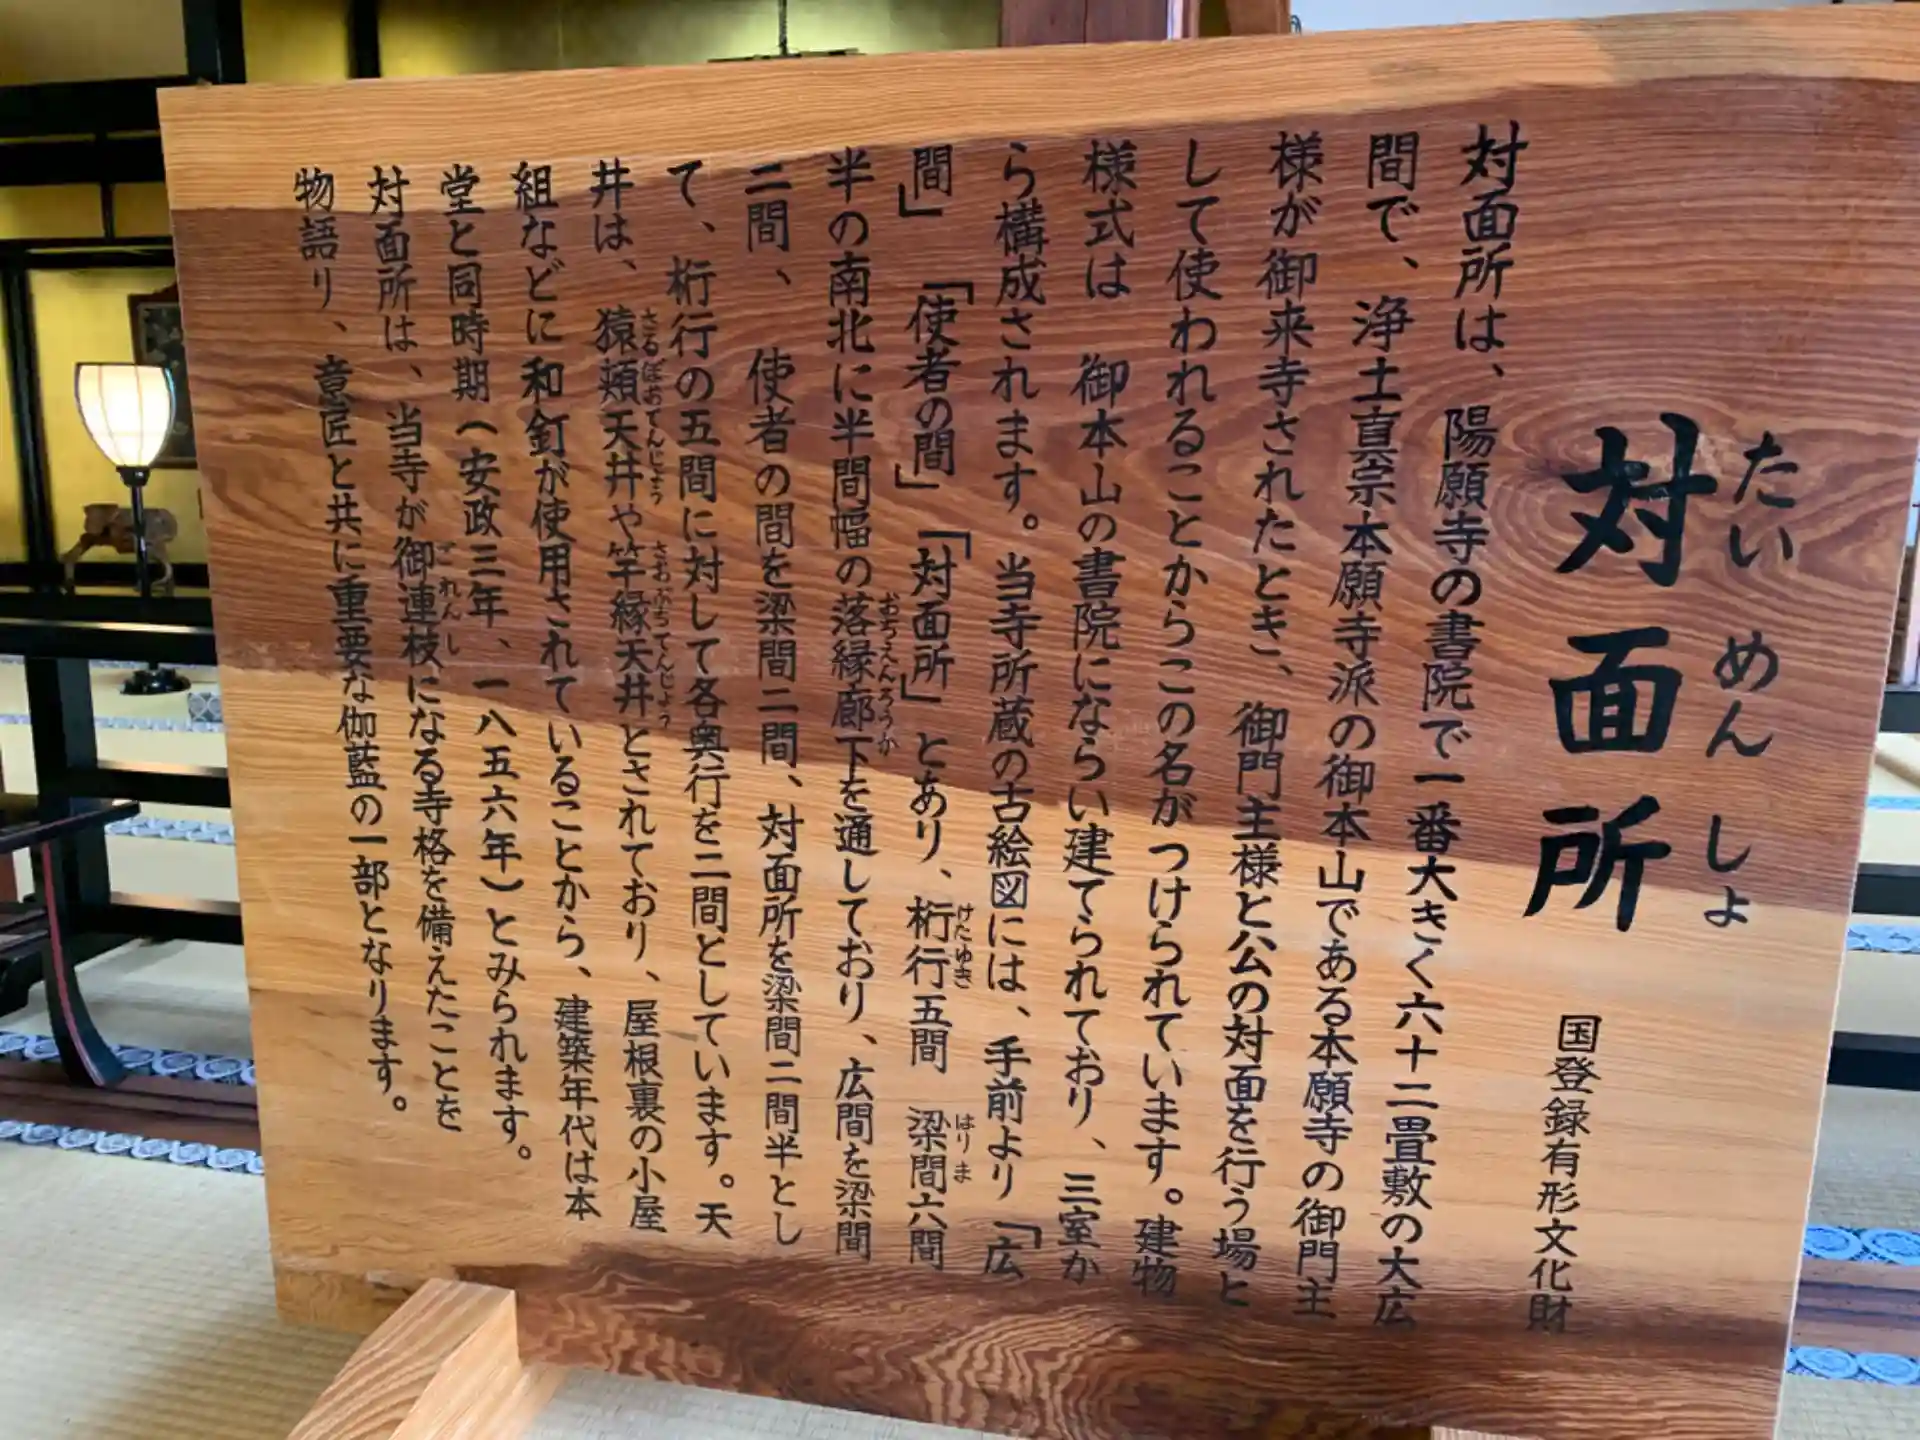 たいめんしょ
対面所
国登録有形文化財
対面所は、陽願寺の書院で一番大きく六十二畳敷の大広
間で、浄土真宗本願寺派の御本山である本願寺の御門主
様が御来寺されたとき、御門主様と公の対面を行う場と
して使われることからこの名がつけられています。建物
様式は 御本山の書院にならい建てられており、三室か
ら構成されます。当寺所蔵の古絵図には、手前より「広
間」「使者の間」「対面所」とあり、桁行五間 梁間六間
けたゆき
はりま
半の南北に半間幅の落縁廊下を通しており、広間を梁間
おちえんろうか
二間、使者の間を梁間二間、対面所を梁間二間半とし
て、桁行の五間に対して各奥行を二間としています。天
井は、猿頬天井や竿縁天井とされており、屋根裏の小屋
さるぼおてんじょう
さおぶちてんじょう
組などに和釘が使用されていることから、建築年代は本
堂と同時期(安政三年、一八五六年)とみられます。
対面所は、当寺が御連枝になる寺格を備えたことを
ごれんし
物語り、意匠と共に重要な伽藍の一部となります。